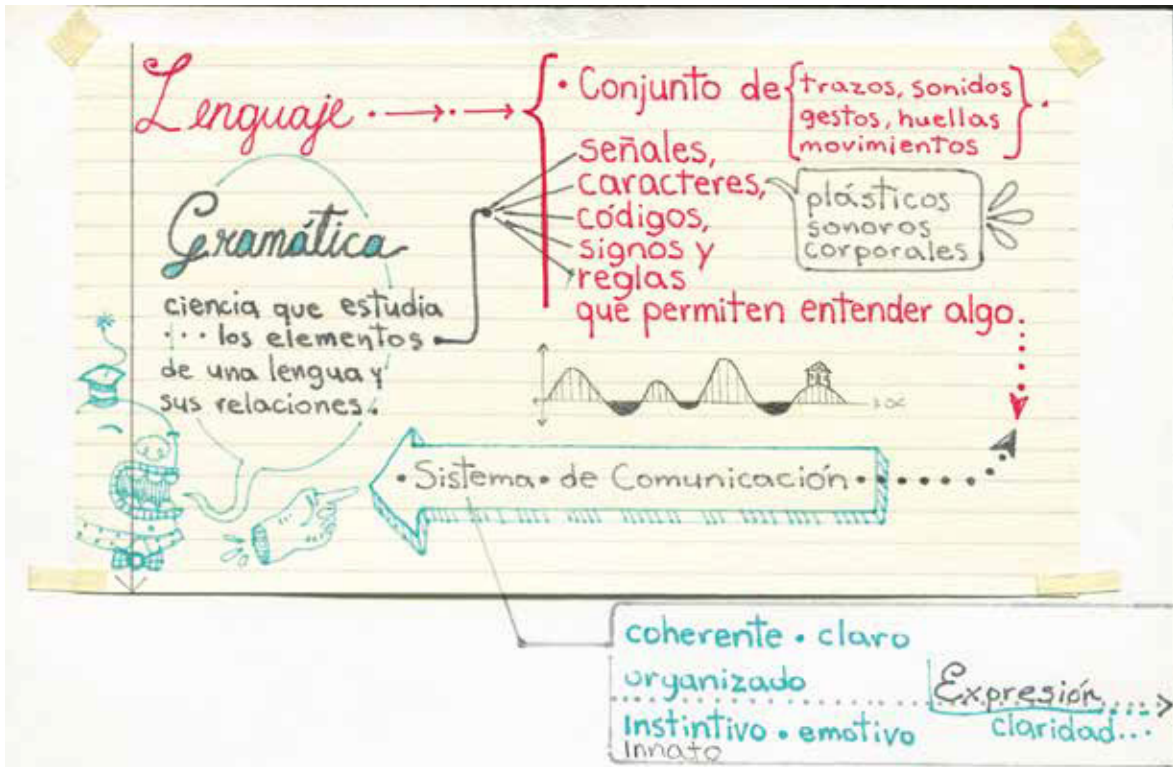 Lenguaje
• Conjunto de
trazos, sonidos
gestos, huellas
movimientos
señales,
caracteres,
códigos,
signos y
reglas
que permiten entender algo.
plásticos
sonoros
corporales
Gramática
ciencia que estudia
... los elementos
de una lengua y
sus relaciones.
• Sistema • de Comunicación •
coherente • claro
organizado
Expresión
Instintivo • emotivo
claridad...
Innato